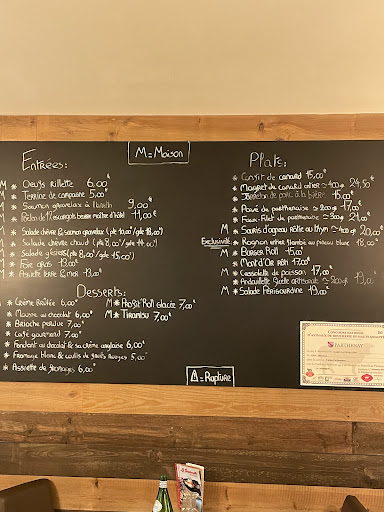 M = Maison
Entrées:
M * Oeufs Rillette 6,00€
M * Terrine de campagne 5,00€
M * Saumon gravelax à l'aneth 9,00€
M * 12 escargots beurre maître d'hôtel 11,00€
M * Salade chèvre & saumon gravelax (pte 10,00€/gde 18,00€)
* Salade chèvre chaud (pte 8,00€/gde 14,00€)
* Salade gésiers (pte 8,00€/gde 15,00€)
M * Foie gras 13,00€
M * Assiette terre & mer 13,00€
Plats:
* Confit de canard 15,00€
* Magret de canard entier ≈400g 24,50€
* de porc à la bière 15,00€
* Pavé de parthenaise ≈200g 17,00€
* Faux-Filet de parthenaise ≈300g 21,00€
M * Souris d'agneau rôtie au thym ≈400g 20,00€
Exclusivité * Rognon entier flambé au pineau blanc 18,00€
M * Burger Roll 15,00€
M * Mont d'Or rôti 17,00€
M * Cassolette de poisson 17,00€
* Andouillette ficelle artisanale ≈200g 19,00€
M * Salade Périgourdine 19,00€
Desserts:
* Crème Brûlée 6,00€
* Mousse au chocolat 6,00€
* Brioche perdue 7,00€
* Café gourmand 7,00€
* Fondant au chocolat & sa crème anglaise 6,00€
* Fromage blanc & coulis de fruits rouges 5,00€
* Assiette de fromages 6,00€
M * Roll glacée 7,00€
M * Tiramisu 7,00€
PARTHENAY
Δ = Rupture